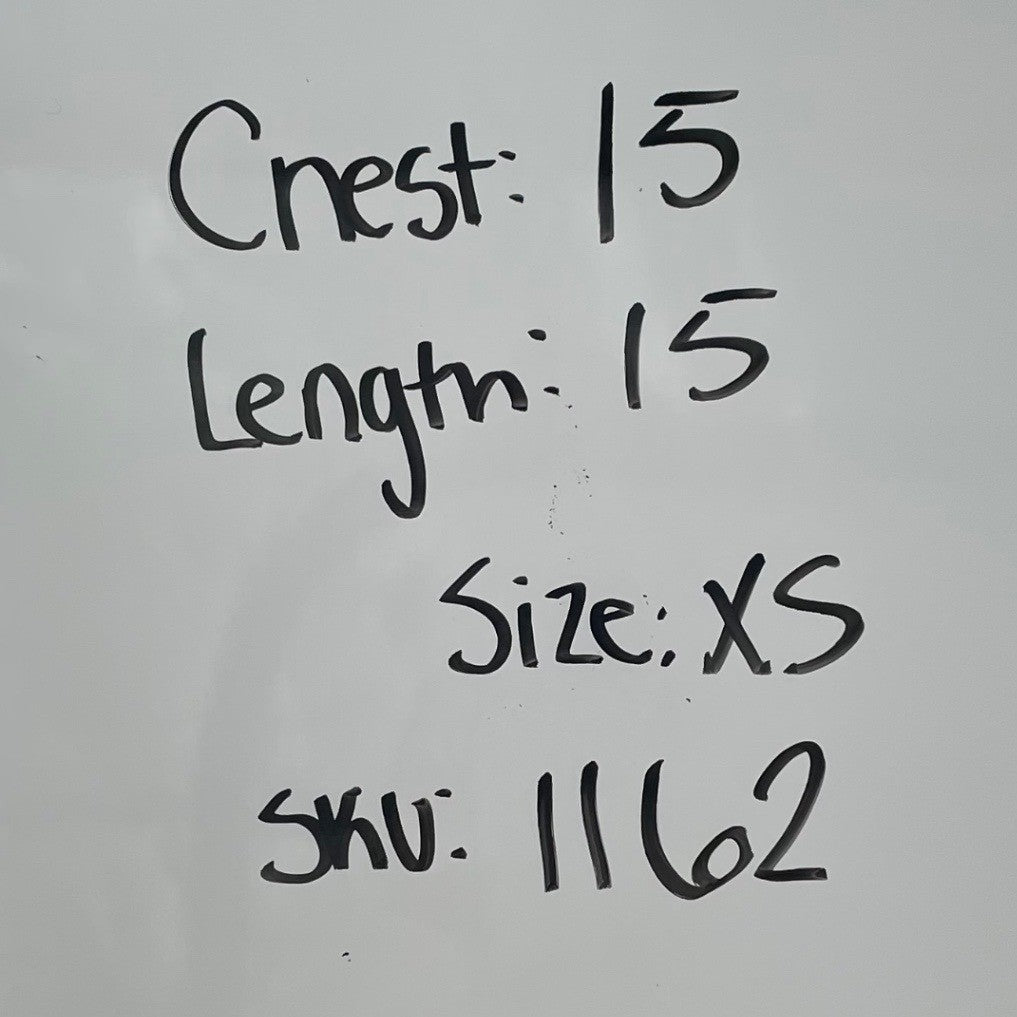 Chest: 15
Length: 15
Size: XS
SKU: 1162